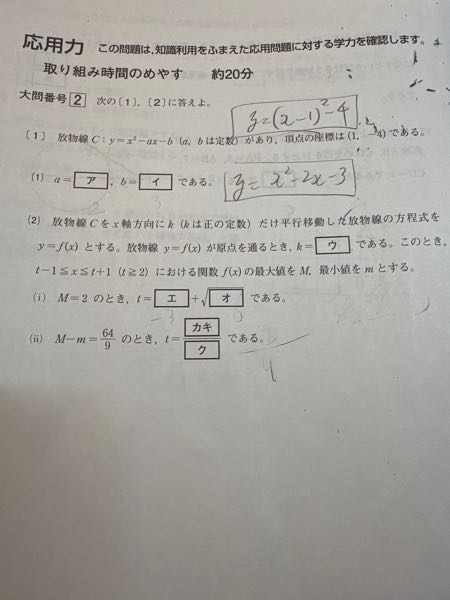 応用力 この問題は,知識利用をふまえた応用問題に対する学力を確認します。
取り組み時間のめやす 約20分
大問番号 2 次の〔1〕,〔2〕に答えよ。
y=(x-1)²-4
〔1〕 放物線 C:y=x²-ax-b (a, b は定数) があり,頂点の座標は(1, -4) である。
(1) a=ア, b=イ である。
y=x²+2x-3
(2) 放物線 C を x 軸方向に k (k は正の定数) だけ平行移動した放物線の方程式を
y=f(x) とする。放物線 y=f(x) が原点を通るとき, k=ウ である。このとき,
t-1≦x≦t+1 (t≧2) における関数 f(x) の最大値を M, 最小値を m とする。
(i) M=2 のとき, t=エ+√オ である。
(ii) M-m=64/9 のとき, t=カキ/ク である。